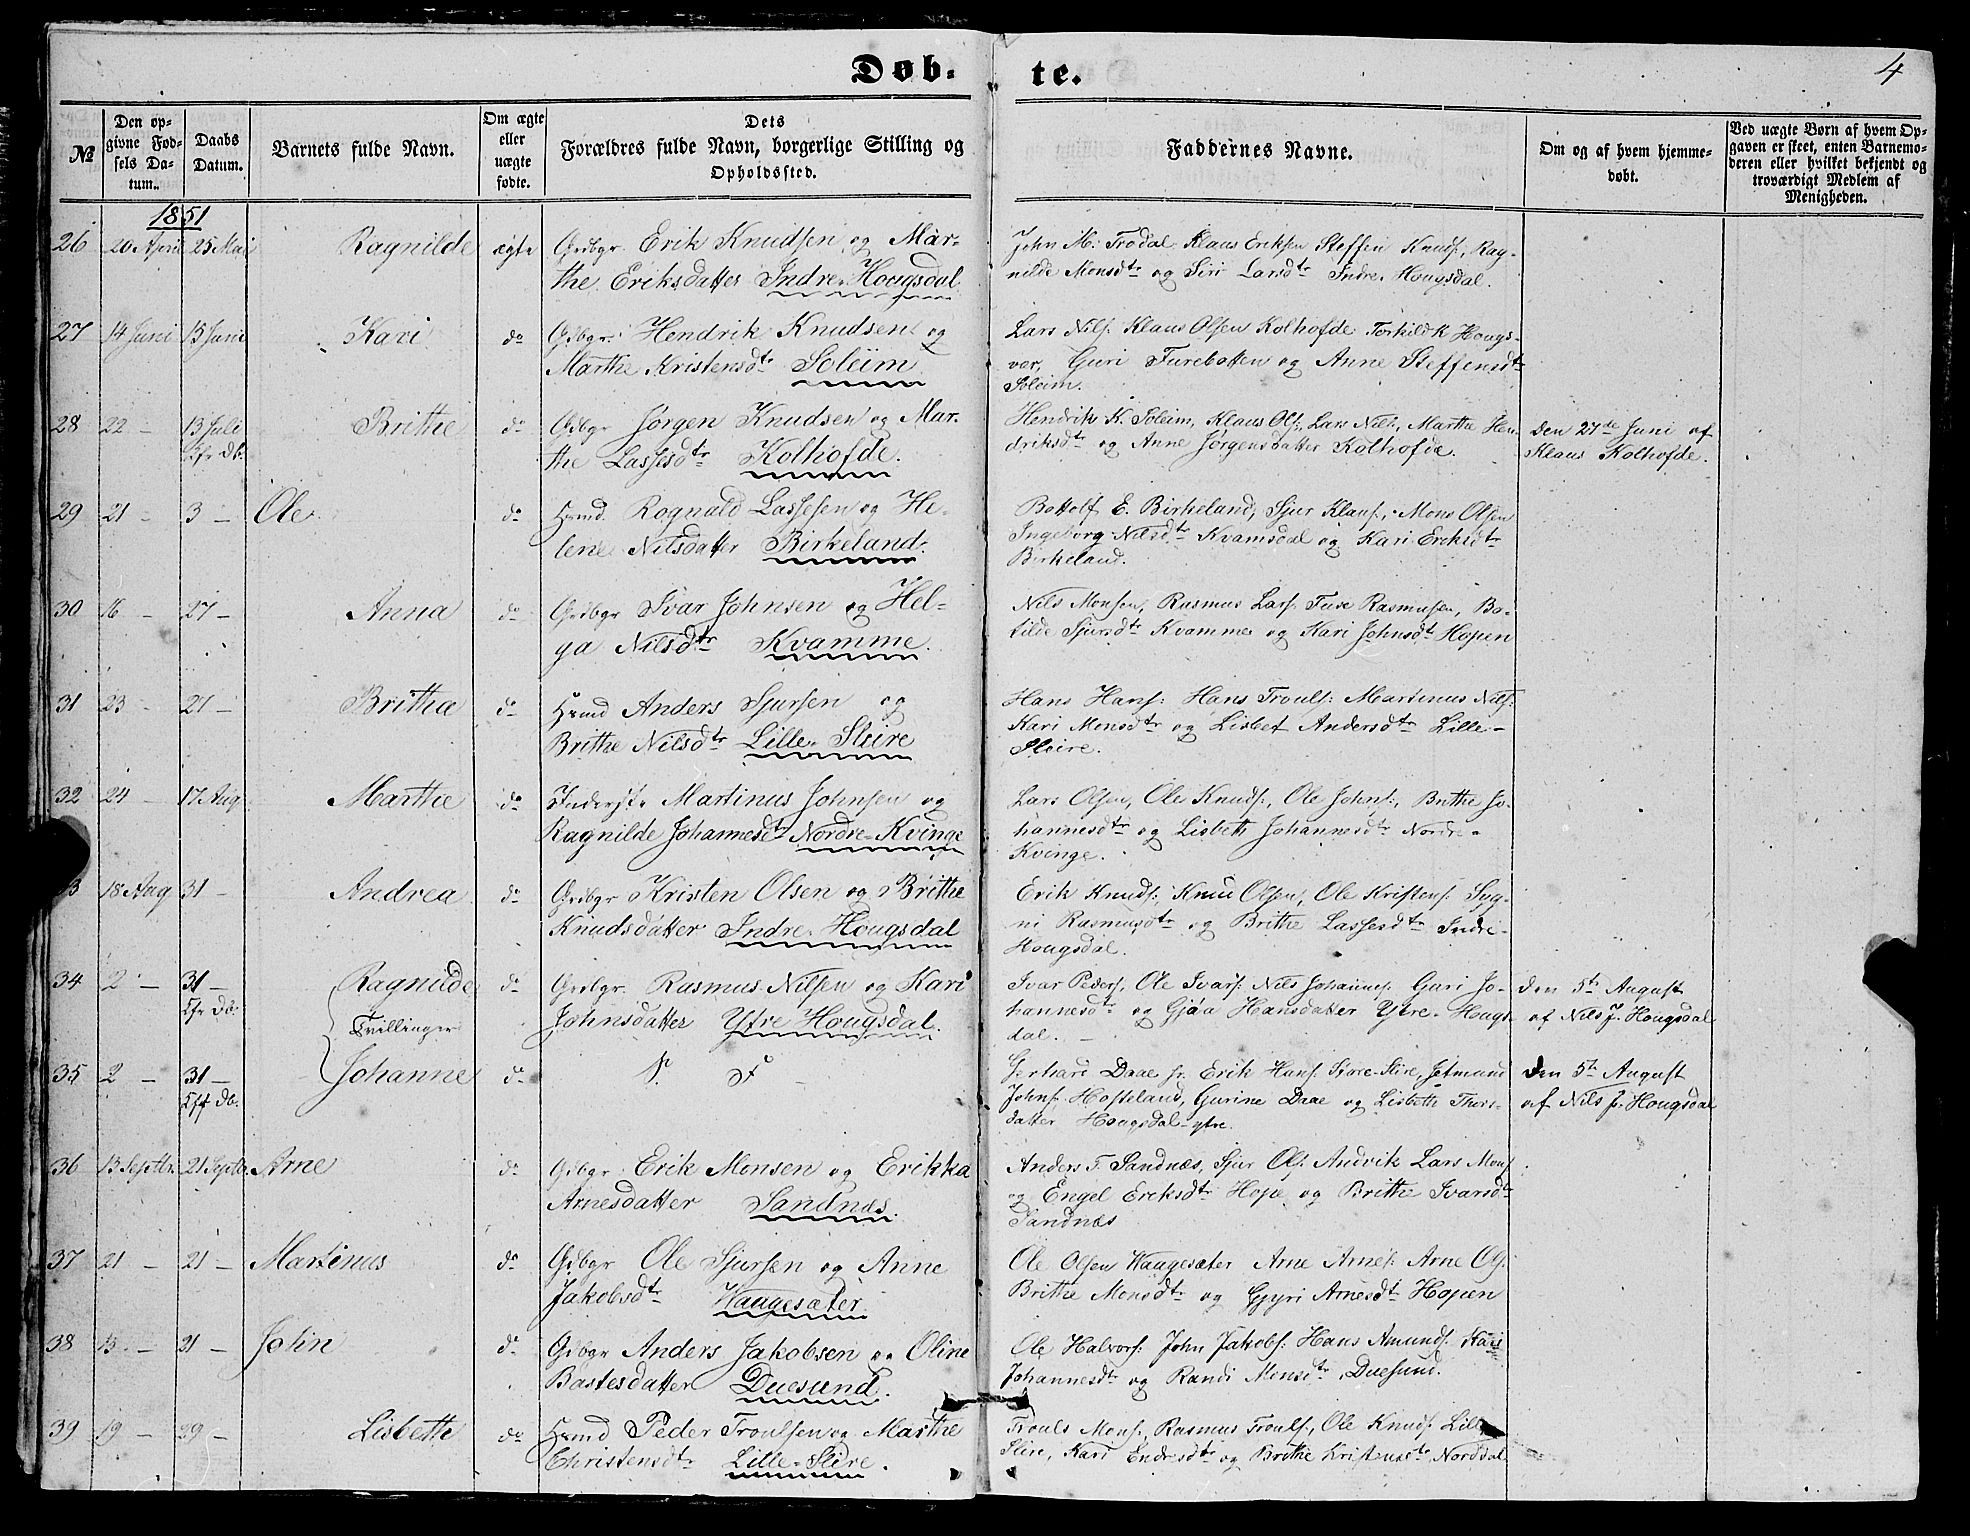 Døb-
te.
4
№
Den op-
givne Fød-
sels Da-
tum.
Daabs
Datum.
Barnets fulde Navn.
Om ægte
eller
uægte
fødte.
Dets
Forældres fulde Navn, borgerlige Stilling og
Opholdssted.
Faddernes Navne.
Om og af hvem hjemme-
døbt.
Ved uægte Børn af hvem Op-
gaven er skeet, enten Barnemo-
deren eller hvilket bekjendt og
troværdigt Medlem af
Menigheden.
1851
26 20 April 25 Mai Ragnilde ægte Grdbgr Erik Knudsen og Mar-
the Eriksdatter Indre-Hougsdal
John M: Trodal Klaus Eriksen Steffen Knuds:, Rag-
nilde Monsdtr og Siri Larsdtr Indre-Hougsdal.
27 14 Juni 15 Juni Kari do Gdbgr: Hendrik Knudsen og
Marthe Kristensdtr Soleim
Lars Nils: Klaus Olsen Kolhofde Torkild K Hougs-
vær, Guri Furebotten og Anne Steffensdtr
Soleim.
28 22 - 13 Juli Brithe do Gdbgr Jørgen Knudsen og Mar-
Cfr Db.
the Lassesdtr Kolhofde.
Hendrik K. Soleim, Klaus Ols:, Lars Nils:, Marthe Hen-
driksdtr og Anne Jørgensdatter Kolhofde.
Den 27de Juni af
Klaus Kolhofde.
29 21 - 3 - Ole do Hsmd. Rognald Lassesen og He-
lene Nilsdatter Birkeland.
Bottolf E. Birkeland, Sjur Klaus:, Mons Olsen
Ingeborg Nilsdtr Kvamsdal og Kari Eriksdtr
Birkeland.
30 16 - 27 - Anna do Grdbgr Ivar Johnsen og Hel-
ga Nilsdtr Kvamme.
Nils Monsen, Rasmus Lars: Tuse Rasmusen, Bo-
tilde Sjursdtr Kvamme og Kari Johnsdtr Hopen
31 23 - 27 - Brithe do Hsmd Anders Sjursen og
Brithe Nilsdtr Lille-Sleire
Hans Hans: Hans Trouls: Martinus Nils:
Kari Monsdtr og Lisbet Andersdtr Lille-
Sleire.
32 24 - 17 Aug Marthe do Inderste Martinus Johnsen og
Ragnilde Johannesdtr Nordre-Kvinge
Lars Olsen, Ole Knuds:, Ole Johns:, Brithe Jo-
hannesdtr og Lisbeth Johannesdtr Nordre-
Kvinge.
3 18 Aug 31 - Andrea do Grdbgr Kristen Olsen og Brithe
Knudsdatter Indre-Hougsdal
Erik Knuds: Knud Olsen, Ole Kristens: Syg-
ni Rasmusdtr og Brithe Lassesdtr Indre-
Hougsdal.
34 2 - 31 - Ragnilde do Grdbgr. Rasmus Nilsen og Kari
Cfr Db.
Tvillinger
Johnsdatter Ytre Hougsdal.
Ivar Peders, Ole Ivars: Nils Johannes: Guri Jo-
hannesdtr og Gjøa Hansdatter Ytre-Hougs-
dal.
Den 5te August
af Nils J. Hougsdal
35 2 - 31 - Johanne do
Cfr Db.
Gerhard Daae jr. Erik Hans: Store-Slire, Jetmund
Johns: Hosteland, Gurine Daae og Lisbeth Thors-
datter Hougsdal-ytre.
Den 5te August
af Nils J. Hougsdal
36 13 Septbr. 21 Septbr. Arne do Gdbgr: Erik Monsen og Erikka
Arnesdatter Sandnæs.
Anders T. Sandnæs, Sjur Ols: Andvik Lars Mons:
og Engel Eriksdtr Hope og Brithe Ivarsdtr
Sandnæs
37 21 - 21 - Martinus do Gdbgr Ole Sjursen og Anne
Jakobsdtr Haugesæter.
Ole Olsen Haugesæter Arne Arnes: Arne Ols:
Brithe Monsdtr og Gjyri Arnesdtr Hopen
38 13. - 21 - John do Gdbgr Anders Jakobsen og Oline
Bastesdatter Duesund.
Ole Halvors: John Jakobs: Hans Amunds: Kari
Johannesdtr og Randi Monsdtr Duesund.
39 19 - 29 - Lisbethe do Hsmd Peder Troulsen og Marthe
Christensdtr Lille-Slire.
Trouls Mons:, Rasmus Trouls:, Ole Knuds: Lille
Slire, Kari Endresdtr og Brithe Kristensdtr Norddal